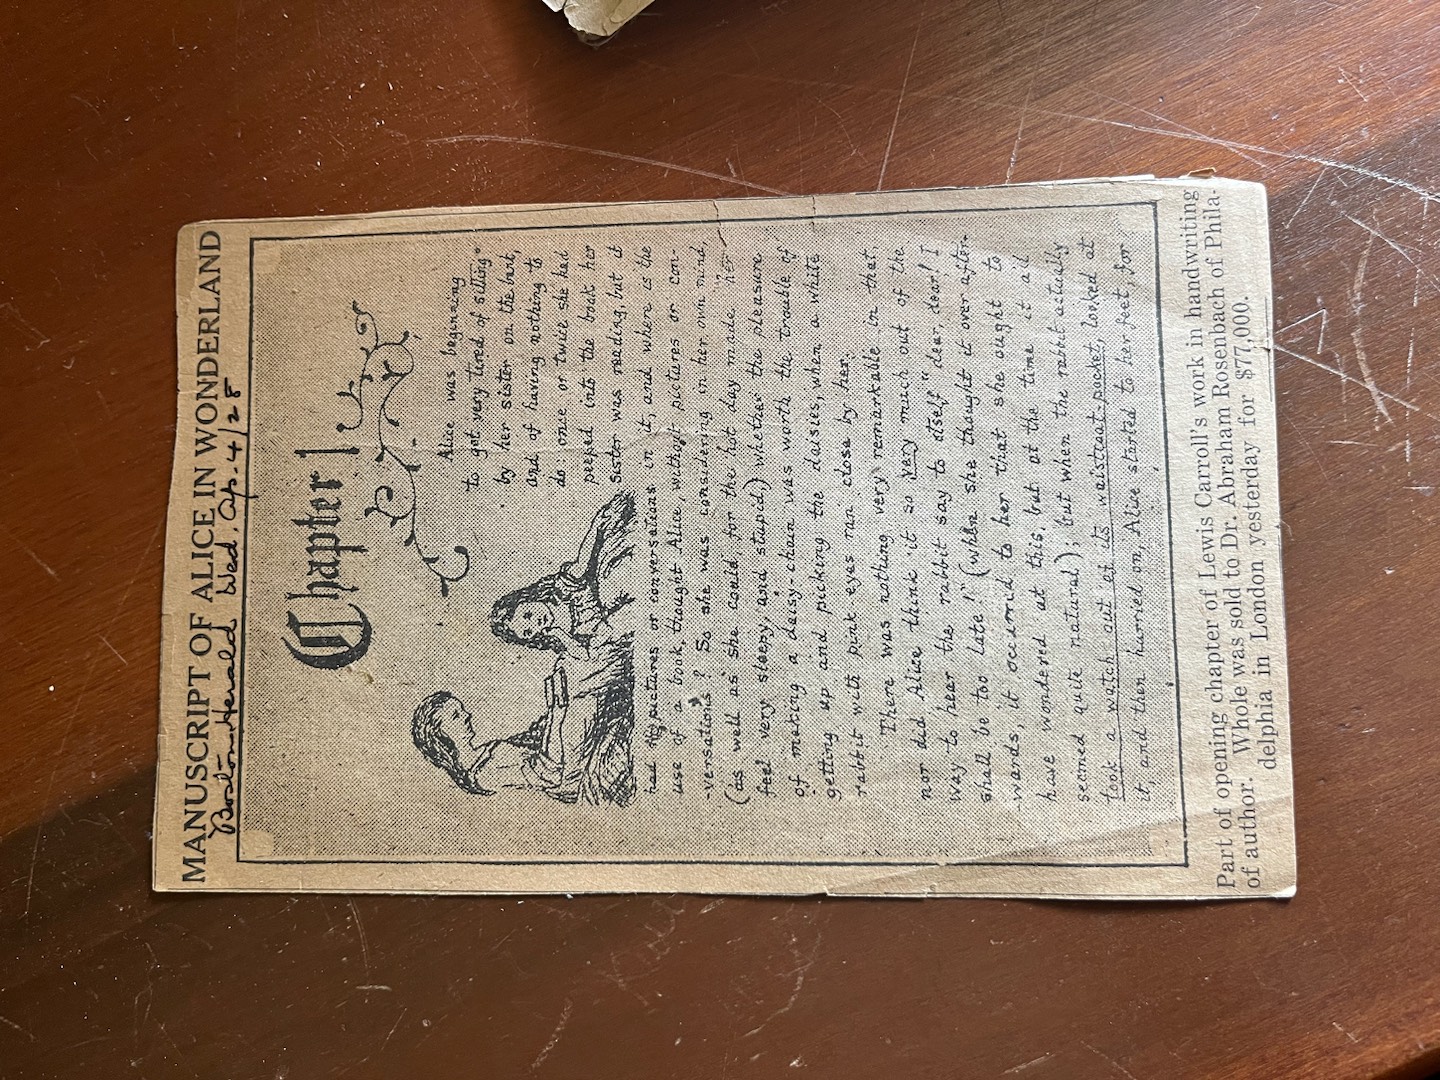 MANUSCRIPT OF ALICE IN WONDERLAND
Boston Herald Wed. Ap. 4/28
Chapter 1
Alice was beginning
to get very tired of sitting
by her sister on the bank,
and of having nothing to
do: once or twice she had
peeped into the book her
sister was reading, but it
had no pictures or conversations in it, and where is the
use of a book, thought Alice, without pictures or con-
-versations? So she was considering in her own mind,
(as well as she could, for the hot day made her
feel very sleepy, and stupid,) whether the pleasure
of making a daisy-chain was worth the trouble of
getting up and picking the daisies, when a white
rabbit with pink eyes ran close by her.
There was nothing very remarkable in that,
nor did Alice think it so very much out of the
way to hear the rabbit say to itself "dear, dear! I
shall be too late!" (when she thought it over after-
-wards, it occurred to her that she ought to
have wondered at this, but at the time it all
seemed quite natural); but when the rabbit actually
took a watch out of its waistcoat-pocket, looked at
it, and then hurried on, Alice started to her feet, for
Part of opening chapter of Lewis Carroll's work in handwriting
of author. Whole was sold to Dr. Abraham Rosenbach of Phila-
delphia in London yesterday for $77,000.